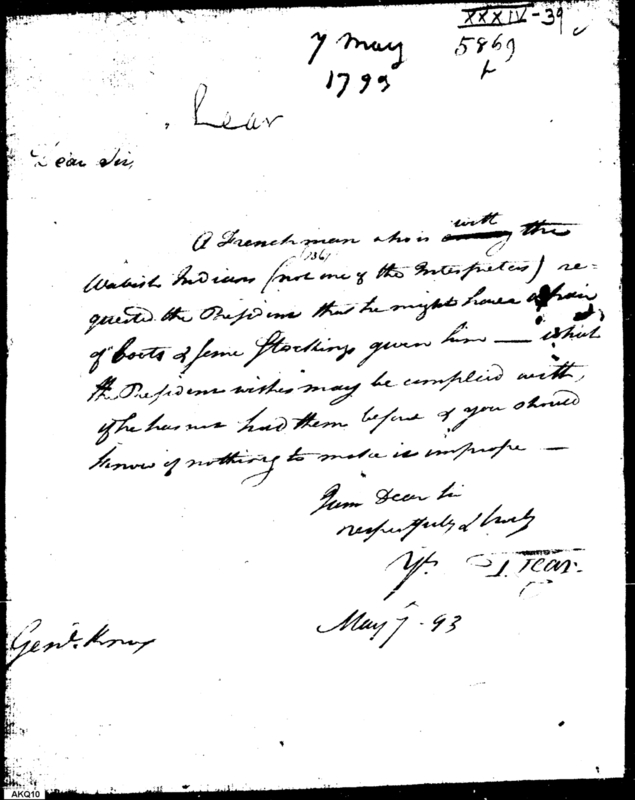 XXXIV-39
7 May
1793
5869
L
Lear
Dear Sir,
A Frenchman who is with the
Wabash Indians (not one of the Interpreters) re-
quested the President that he might have a pair
of boots & some Stockings given him — which
the President wishes may be complied with,
if he has not had them before & you should
know of nothing to make it improper —
I am Dear Sir
respectfully & truly
Yrs. T. Lear.
May 7 - 93
Genl. Knox
AKQ10